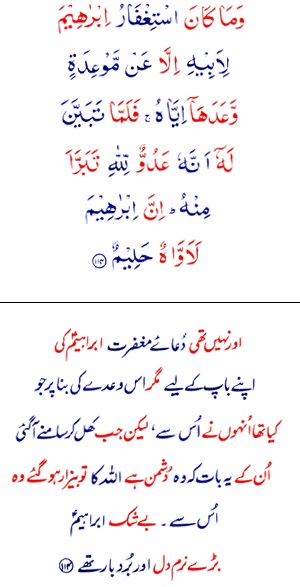 وَمَا كَانَ اسْتِغْفَارُ اِبْرٰهِيْمَ
لِاَبِيْهِ اِلَّا عَنْ مَّوْعِدَةٍ
وَّعَدَهَاۤ اِيَّاهُ ۚ فَلَمَّا تَبَيَّنَ
لَهٗۤ اَنَّهٗ عَدُوٌّ لِّلّٰهِ تَبَرَّاَ
مِنْهُ ؕ اِنَّ اِبْرٰهِيْمَ
لَاَوَّاهٌ حَلِيْمٌ ﴿۱۱۴﴾
اور نہیں تھی دُعائے مغفرت ابراہیمؑ کی
اپنے باپ کے لیے مگر اس وعدے کی بنا پر جو
کیا تھا اُنہوں نے اُس سے، لیکن جب کھل کر سامنے آ گئی
اُن کے یہ بات کہ وہ دُشمن ہے اللہ کا تو بیزار ہو گئے وہ
اُس سے ۔ بے شک ابراہیمؑ
بڑے نرم دل اور بُردبار تھے ﴿۱۱۴﴾